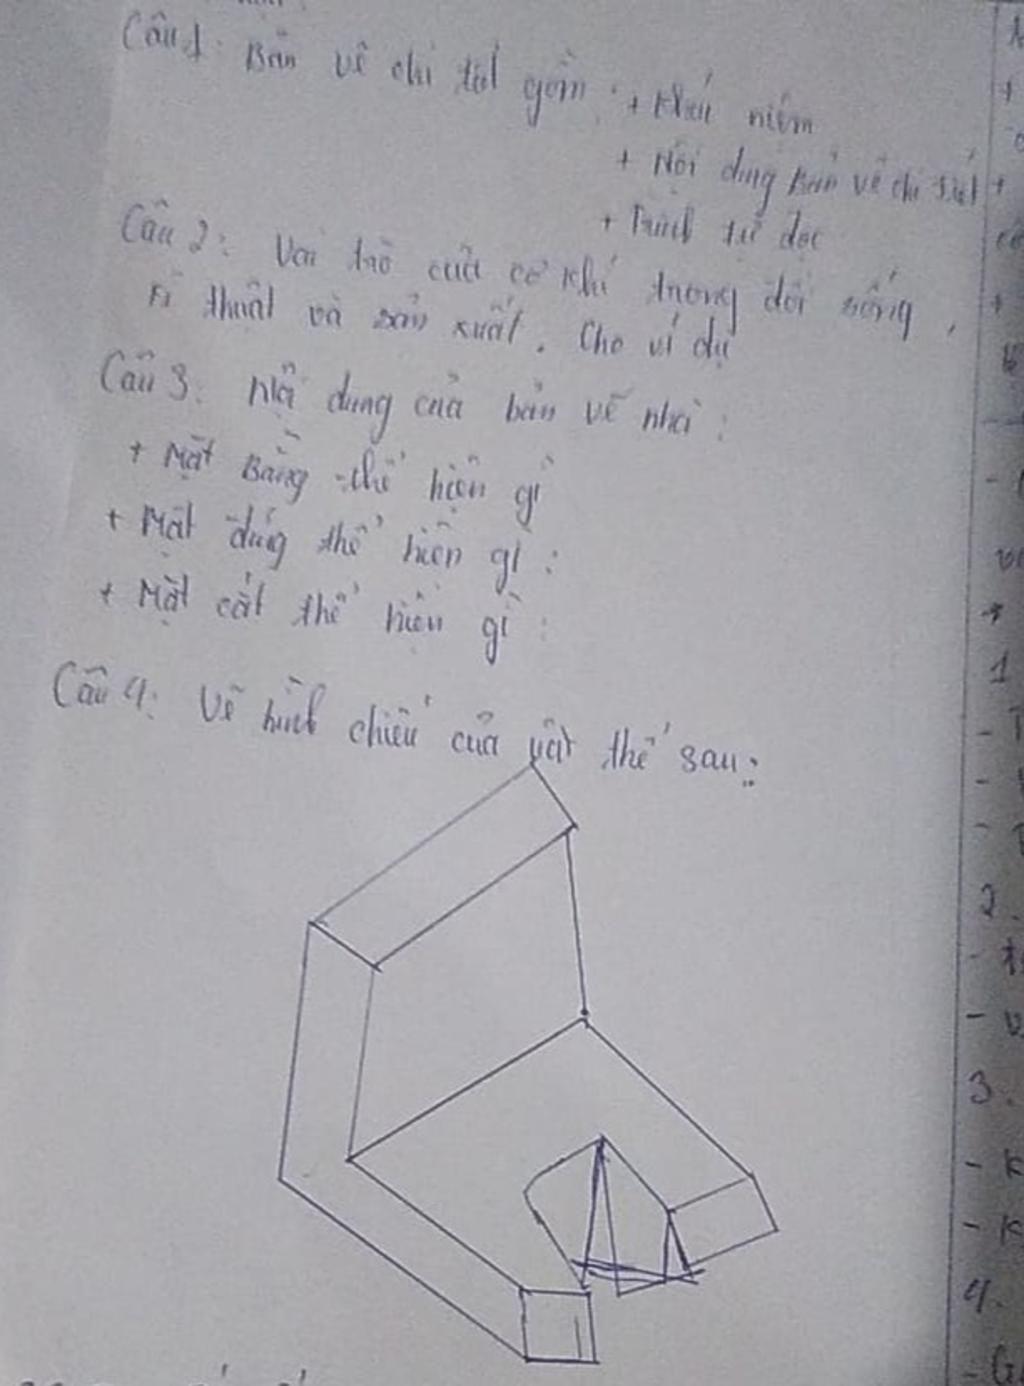 Câu 1: Bản vẽ chi tiết gồm: + Khái niệm
+ Nội dung Bản vẽ chi tiết
+ Trình tự đọc
Câu 2: Vai trò của cơ khí trong đời sống,
kĩ thuật và sản xuất. Cho ví dụ
Câu 3: Nội dung của bản vẽ nhà:
+ Mặt Bằng thể hiện gì
+ Mặt đứng thể hiện gì:
+ Mặt cắt thể hiện gì:
Câu 4: Vẽ hình chiếu của vật thể sau:
1
2.
3.
- K
- K
4.
- G